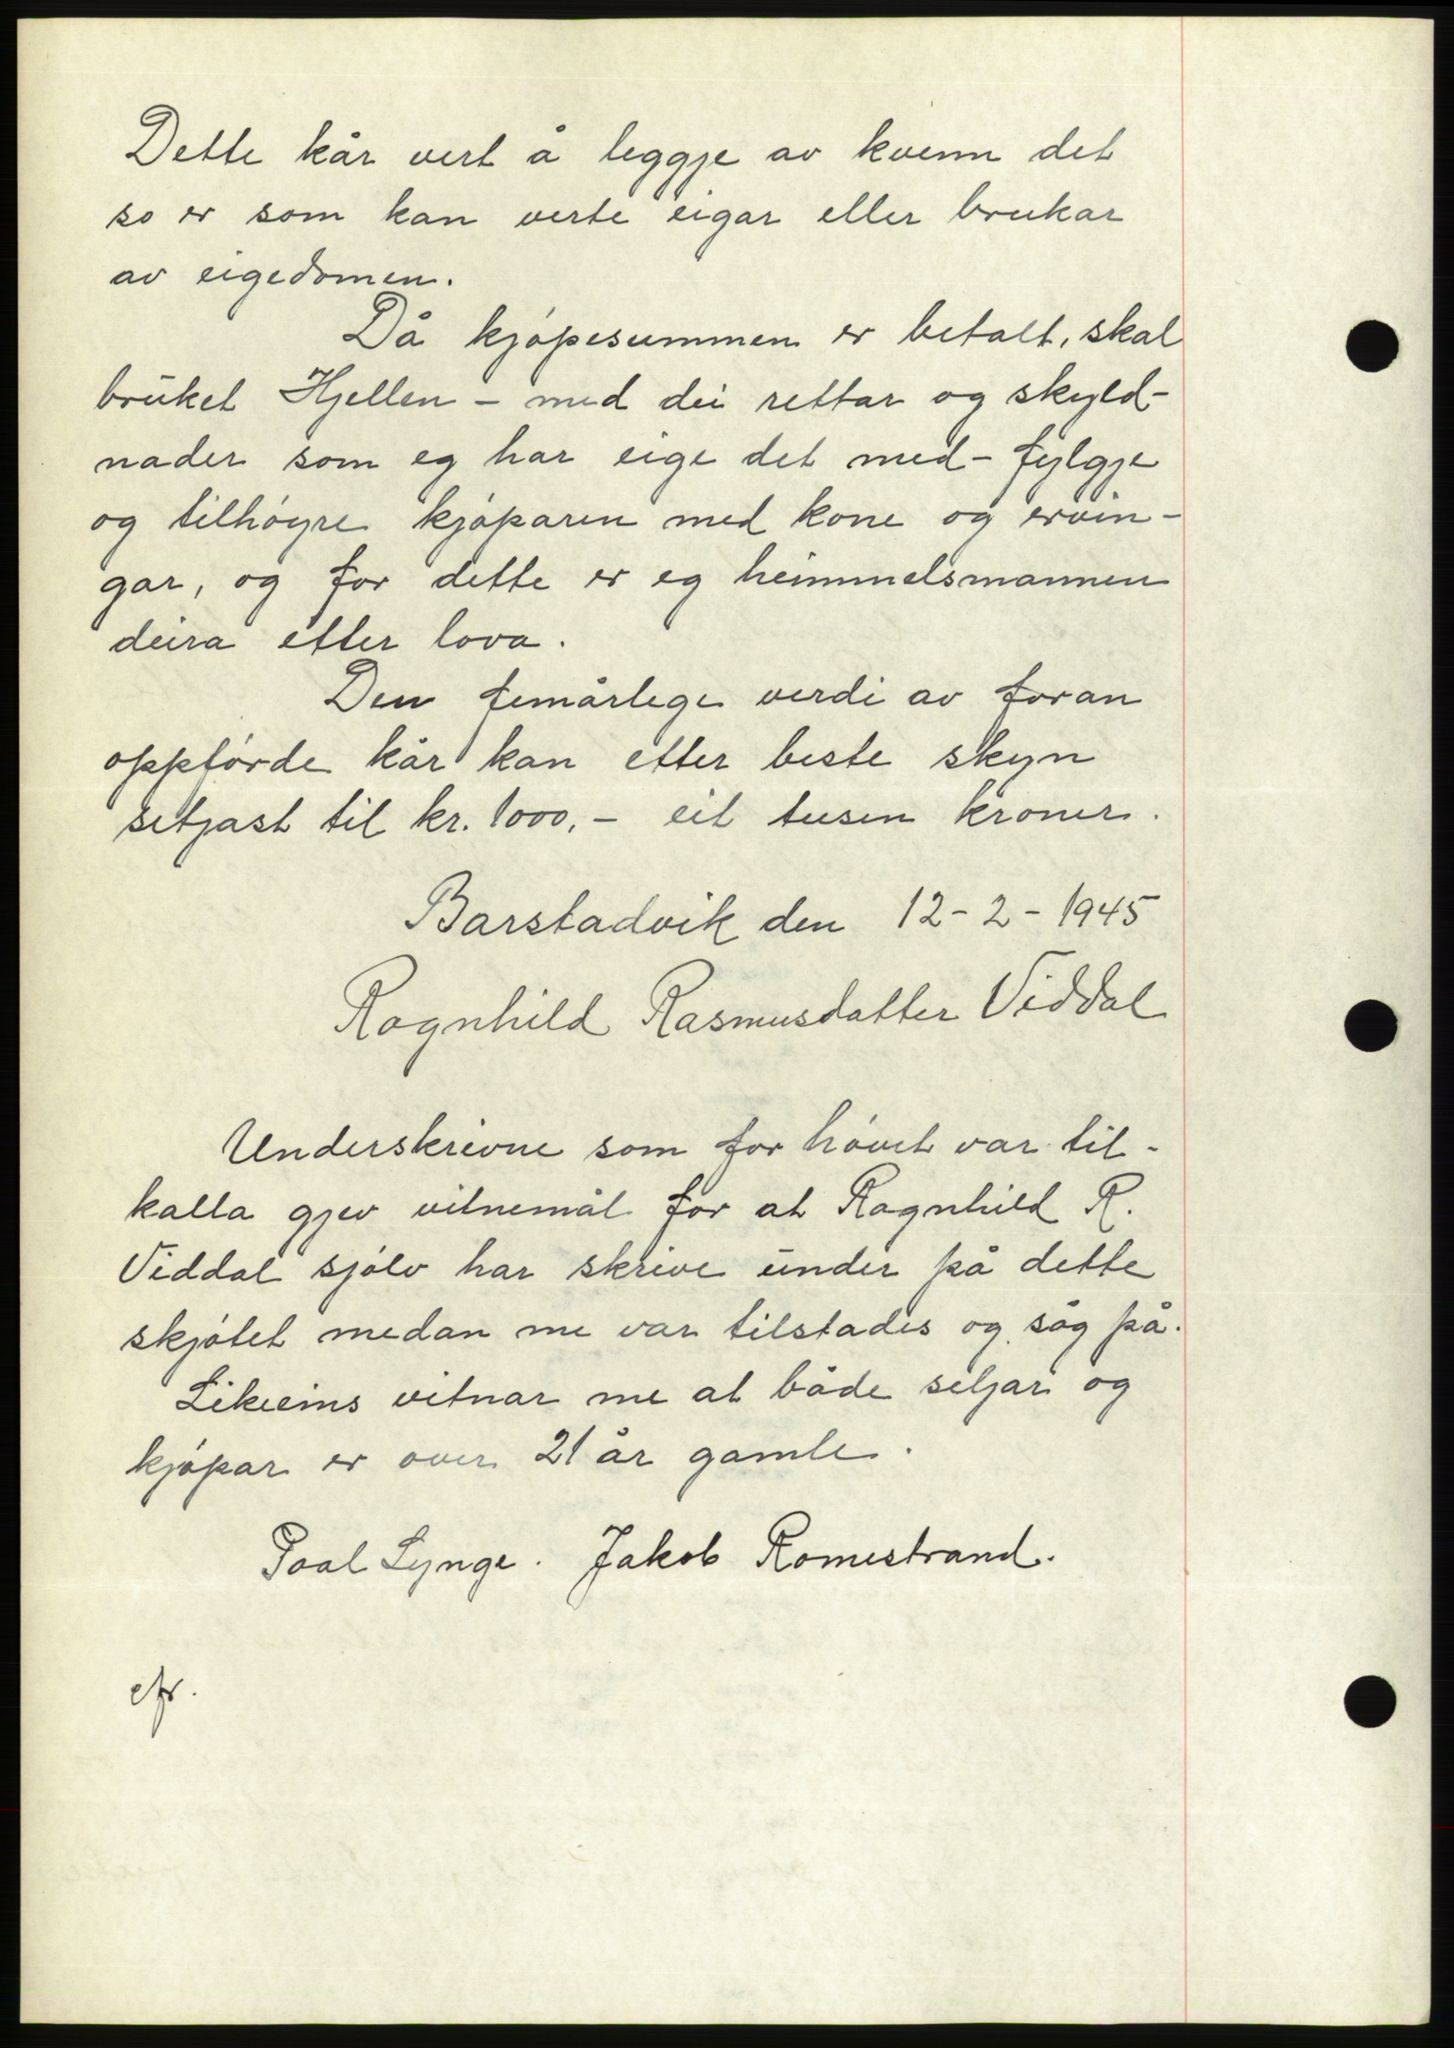 Dette kår vert å leggje av kvenn det
so er som kan verte eigar eller brukar
av eigedomen.
Då kjøpesummen er betalt, skal
bruket Hjellen - med dei rettar og skyld-
nader som eg har eige det med - fylgje
og tilhøyre kjøparen med kone og ervin-
gar, og for dette er eg heimmelsmannen
deira etter lova.
Den femårlege verdi av foran
oppførde kår kan etter beste skyn
setjast til kr. 1000,- eit tusen kroner.
Barstadvik den 12-2-1945
Ragnhild Rasmusdatter Viddal
Underskrivne som for høvet var til-
kalla gjev vitnemål for at Ragnhild R.
Viddal sjølv har skrive under på dette
skjøtet medan me var tilstades og såg på.
Likeeins vitnar me at både seljar og
kjøpar er over 21 år gamle.
Paal Lynge. Jakob Romestrand.